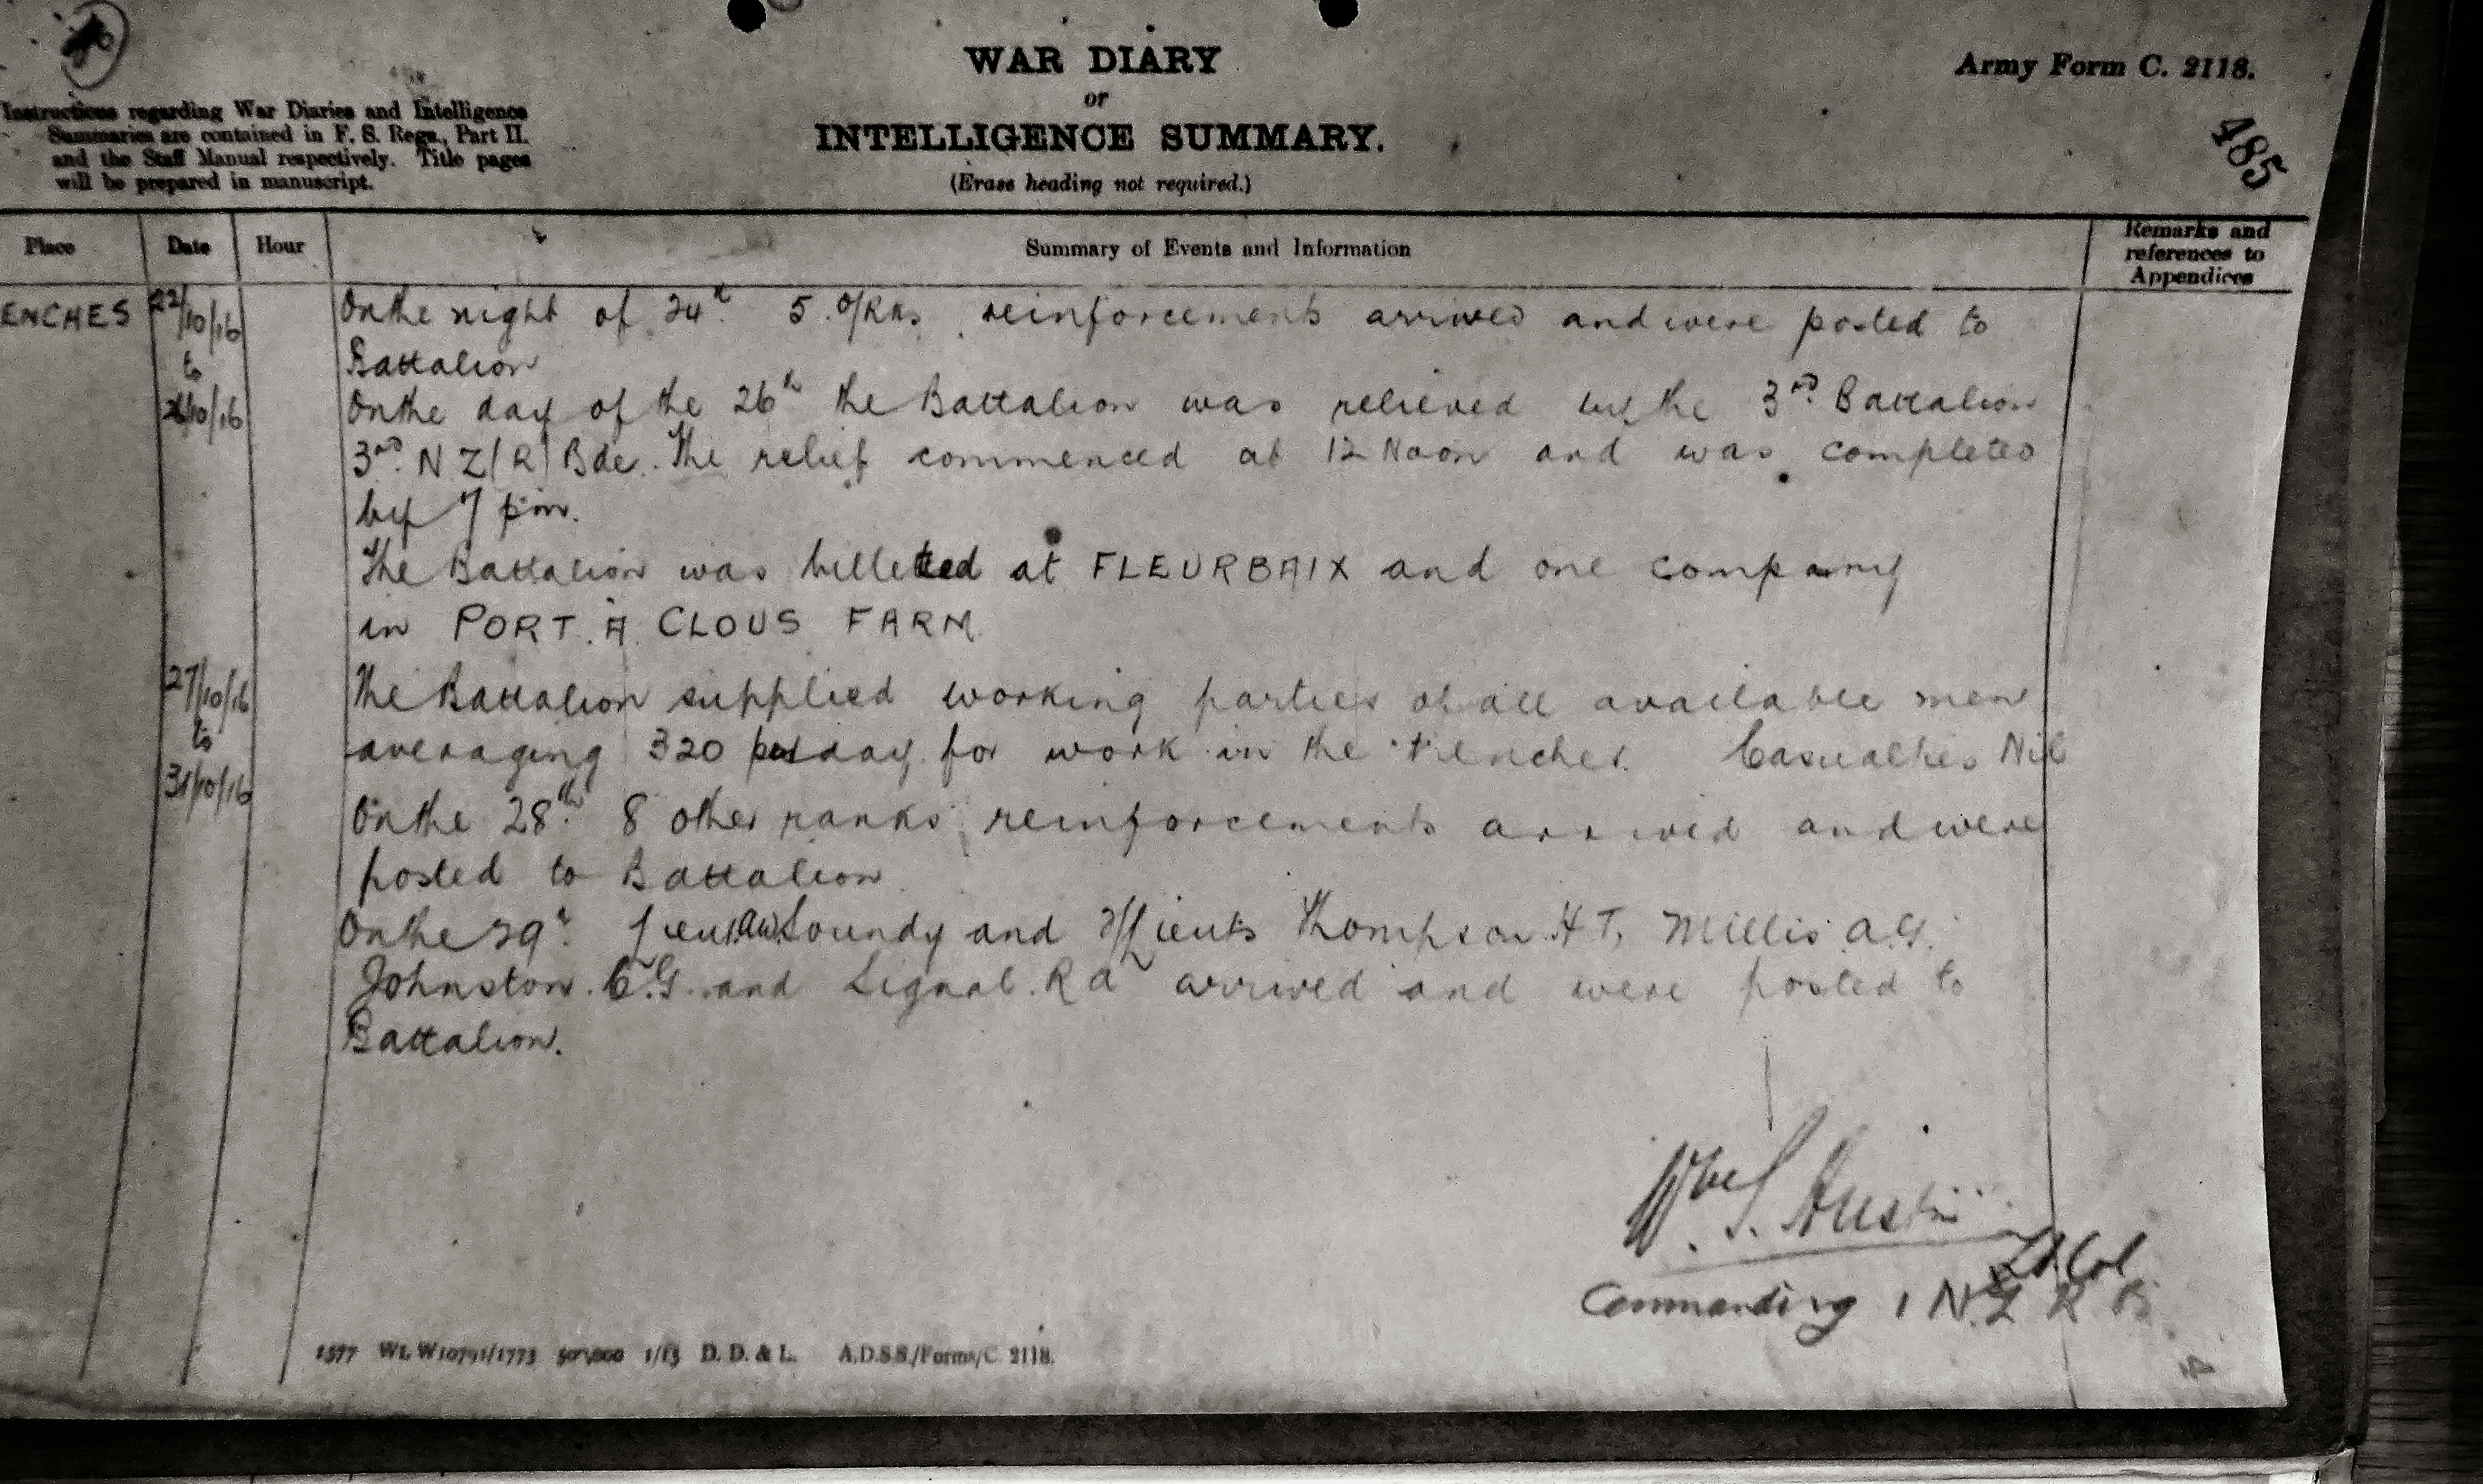 WAR DIARY
or
INTELLIGENCE SUMMARY.
(Erase heading not required.)
Army Form C. 2118.
485
Instructions regarding War Diaries and Intelligence
Summaries are contained in F. S. Regs., Part II.
and the Staff Manual respectively. Title pages
will be prepared in manuscript.
Place Date Hour Summary of Events and Information Remarks and
references to
Appendices
ENCHES 22/10/16 On the night of 24th 5 O/Rks reinforcements arrived and were posted to
to Battalion
26/10/16 On the day of the 26th the Battalion was relieved by the 3rd Battalion
3rd N Z (R) Bde. The relief commenced at 12 Noon and was completed
by 7 pm.
The Battalion was billetted at FLEURBAIX and one company
in PORT. A CLOUS FARM
27/10/16 The Battalion supplied working parties of all available men
to averaging 320 per day for work in the trenches. Casualties Nil
31/10/16 On the 28th 8 other ranks reinforcements arrived and were
posted to Battalion
On the 29th Lieut. Soundy and Lieuts Thompson H T, Millis A.G.
Johnston C.G. and Signal R A arrived and were posted to
Battalion.
W. S. Austin
Lt Col
Commanding 1 N.Z R B
1577 Wt. W10791/1773 500,000 1/15 D. D. & L. A.D.S.S./Forms/C. 2118.